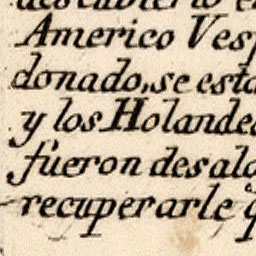 descubierto e
Americo Vesp
donado, se esta
y los Holandes
fueron desalo
recuperarle q